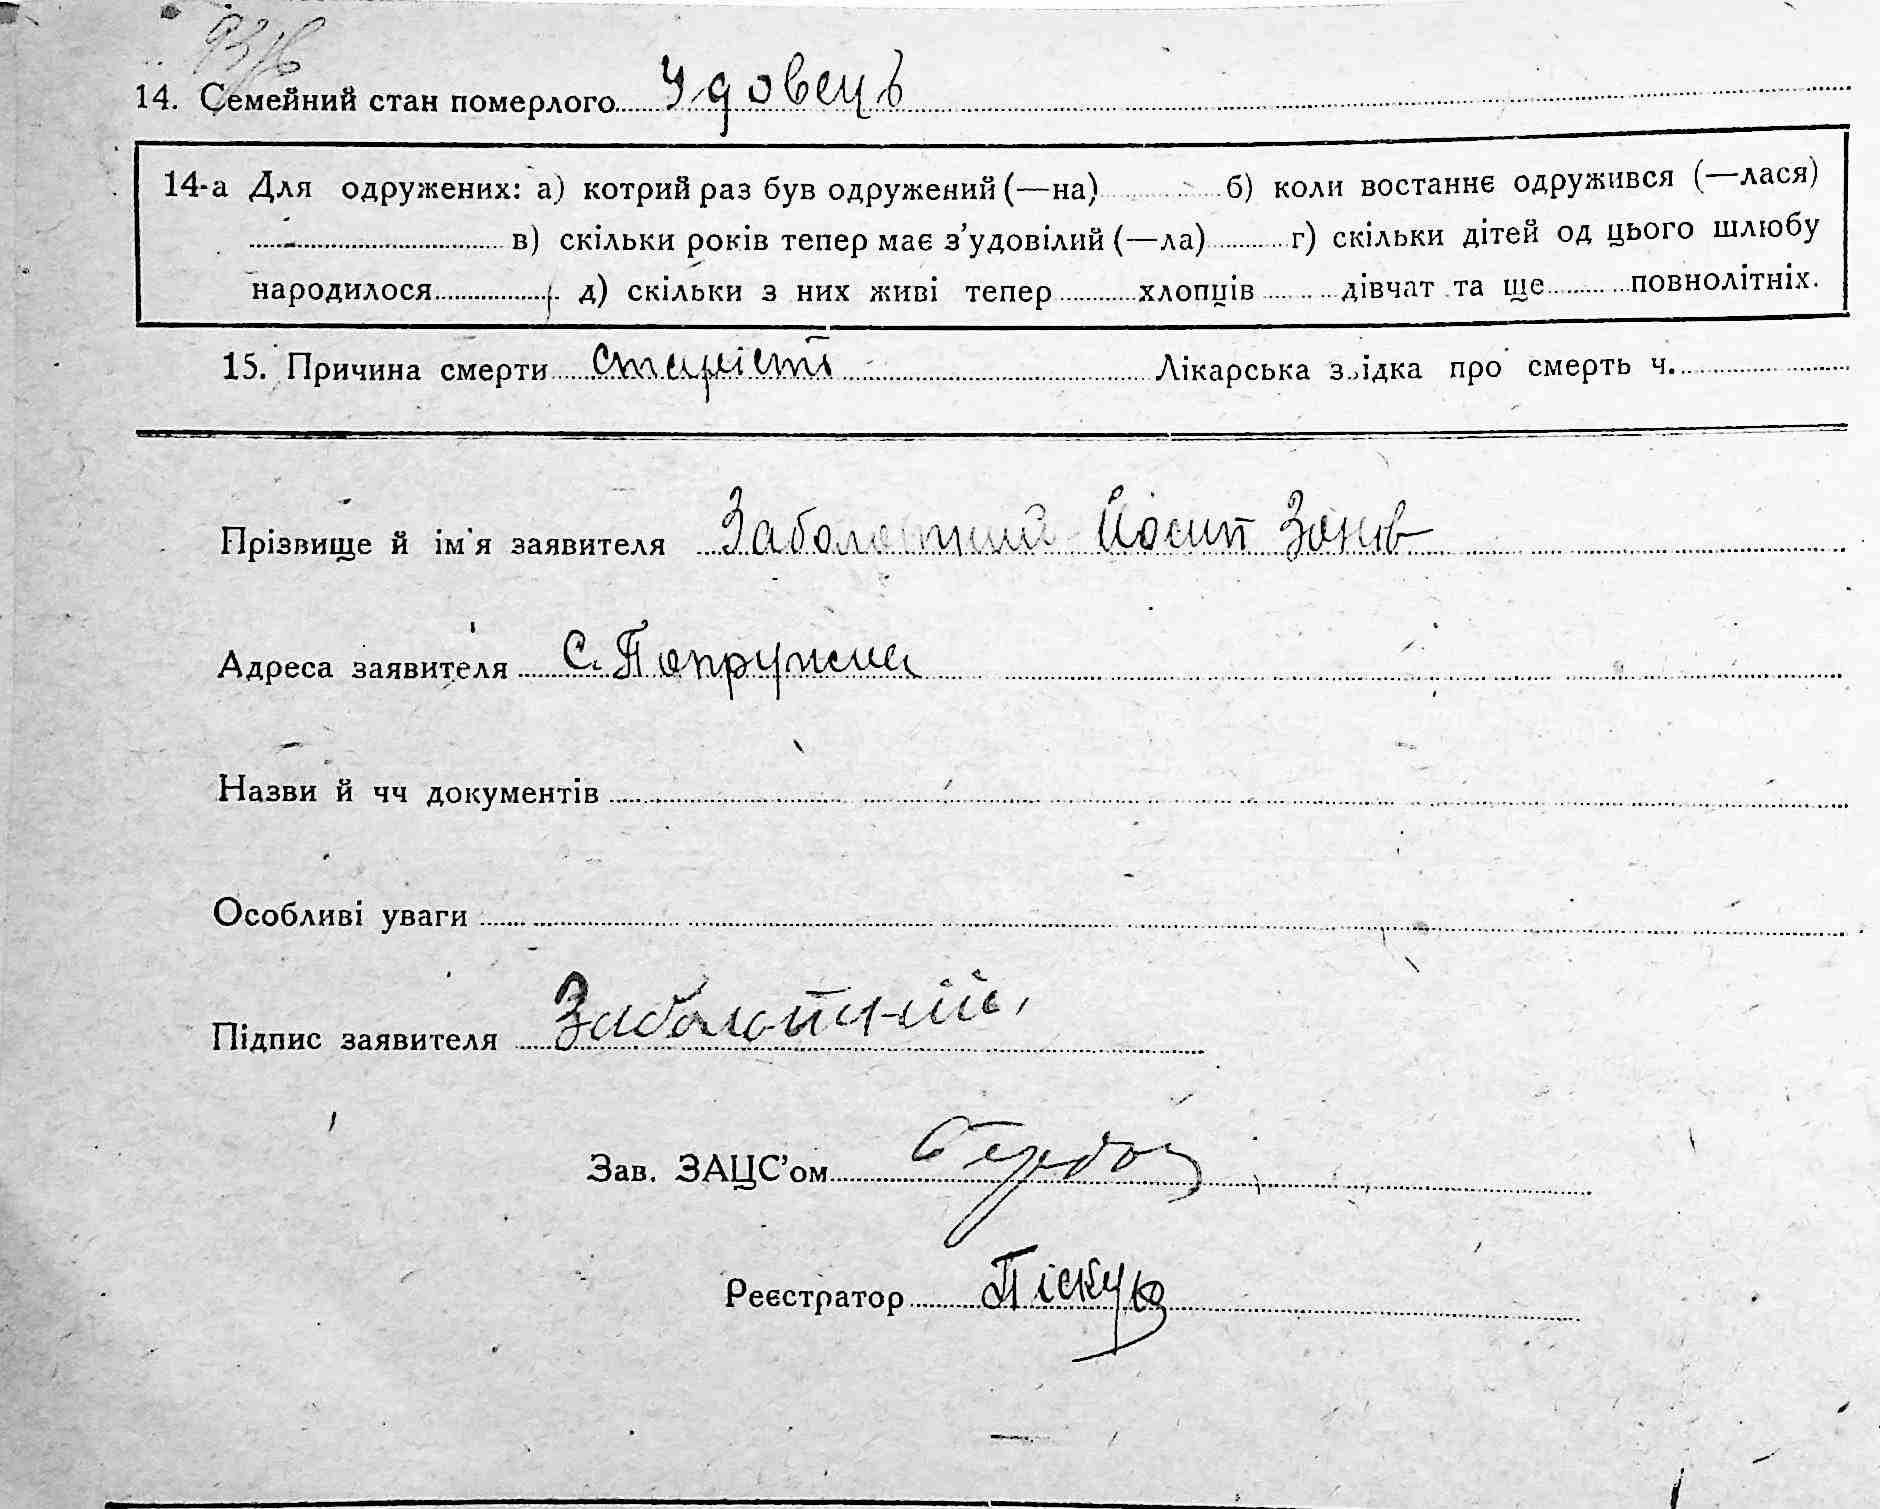 14. Семейний стан померлого Удовець
14-а Для одружених: а) котрий раз був одружений (—на) б) коли востаннє одружився (—лася)
в) скільки років тепер має з'удовілий (—ла) г) скільки дітей од цього шлюбу
народилося д) скільки з них живі тепер хлопців дівчат та ще повнолітніх.
15. Причина смерти старість Лікарська звідка про смерть ч.
Прізвище й ім'я заявителя Заболотний Йосип
Адреса заявителя С. Попружна
Назви й чч документів
Особливі уваги
Підпис заявителя Заболотний
Зав. ЗАЦС'ом
Реєстратор